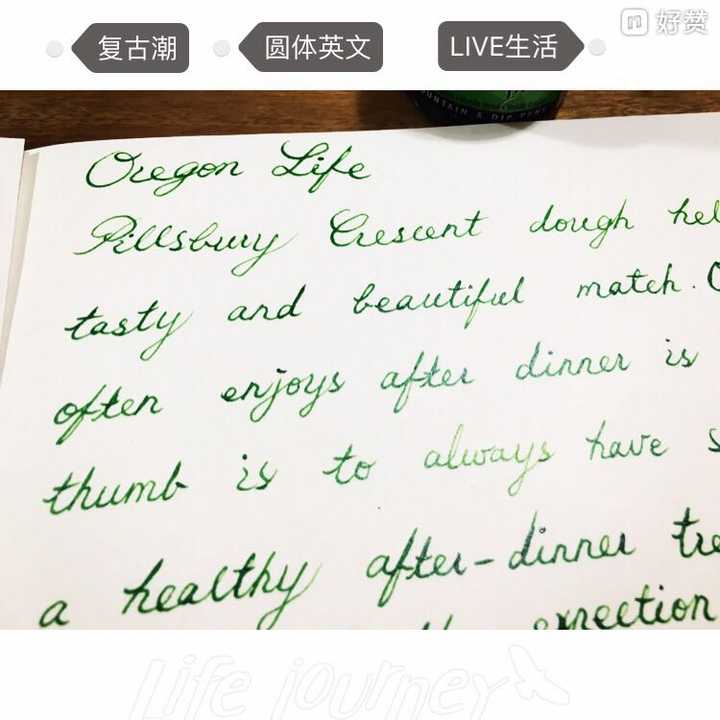 好赞
复古潮 圆体英文 LIVE生活
UNTAIN & DIP PEN
Oregon Life
Pillsbury Crescent dough hel
tasty and beautiful match. O
often enjoys after dinner is
thumb is to always have s
a healthy after-dinner tre
Life journey